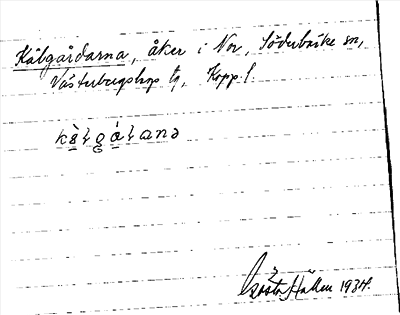 Kålgårdarna, åker i Nor, Söderbärke sn,
Västerbergslags tg, Kopp. l.
kàlgáɭanə
Gösta Hallen 1934.